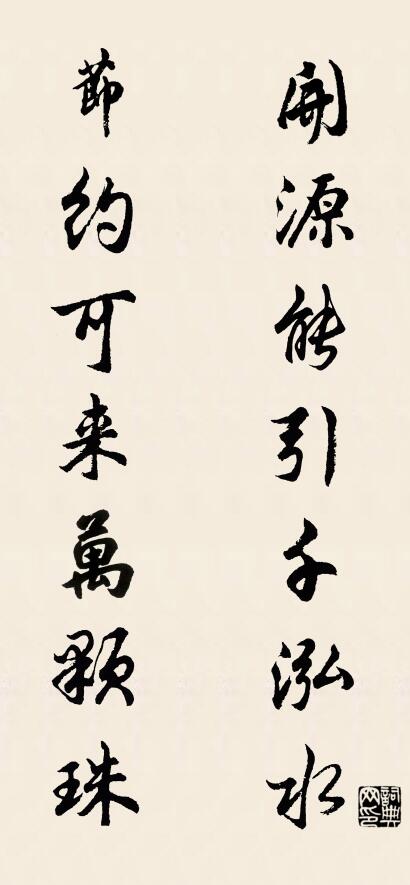 開源能引千泓水
節約可来萬顆珠
詞典网印